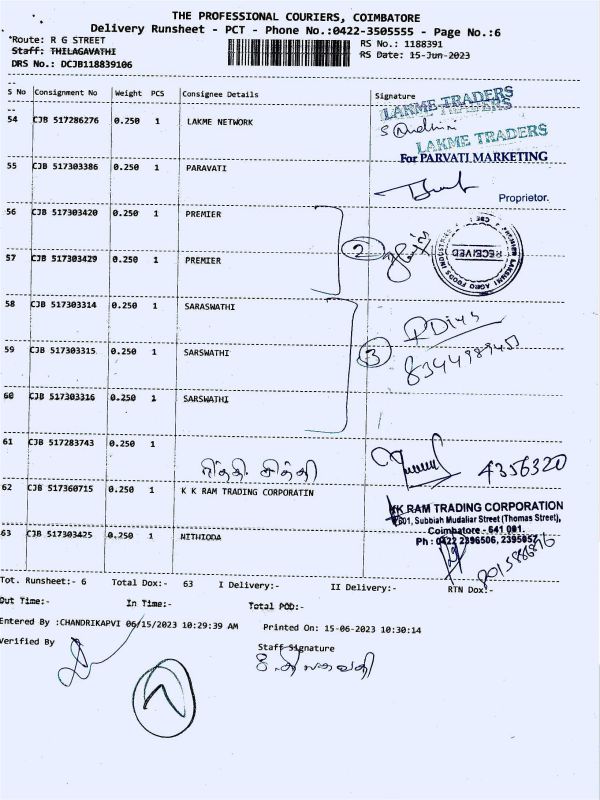 THE PROFESSIONAL COURIERS, COIMBATORE
Delivery Runsheet - PCT - Phone No.:0422-3505555 - Page No.:6
*Route: R G STREET
RS No.: 1188391
Staff: THILAGAVATHI
RS Date: 15-Jun-2023
DRS No.: DCJB118839106
S No Consignment No Weight PCS Consignee Details Signature
54 CJB 517286276 0.250 1 LAKME NETWORK
LAKME TRADERS
LAKME TRADERS
For PARVATI MARKETING
55 CJB 517303386 0.250 1 PARAVATI
Proprietor.
56 CJB 517303420 0.250 1 PREMIER
2
RECEIVED
57 CJB 517303429 0.250 1 PREMIER
58 CJB 517303314 0.250 1 SARASWATHI
59 CJB 517303315 0.250 1 SARSWATHI
3
60 CJB 517303316 0.250 1 SARSWATHI
61 CJB 517283743 0.250 1
4356320
62 CJB 517360715 0.250 1 K K RAM TRADING CORPORATIN
KK RAM TRADING CORPORATION
Subbiah Mudaliar Street (Thomas Street),
Coimbatore - 641 001.
63 CJB 517303425 0.250 1 NITHIODA
Ph : 0422 2396506, 2395057
Tot. Runsheet:- 6 Total Dox:- 63 I Delivery:- II Delivery:- RTN Dox:-
Out Time:- In Time:- Total POD:-
Entered By :CHANDRIKAPVI 06/15/2023 10:29:39 AM Printed On: 15-06-2023 10:30:14
Verified By Staff Signature